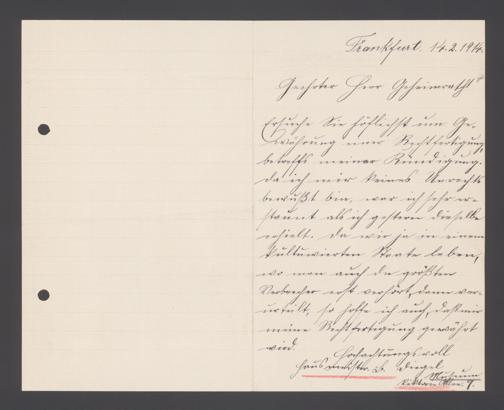 Frankfurt. 14.2.1914.
Geehrter Herr Geheimrath!
Ersuche Sie höflichst um Ge-
währung einer Rechtfertigung,
betreffs meiner Kündigung.
Da ich mir keines Unrechts
bewußt bin, war ich sehr er-
staunt als ich gestern dieselbe
erhielt. Da wir ja in einem
kultivierten Staate leben,
wo man auch die größten
Verbrecher erst verhört, dann ver-
urteilt, so hoffe ich auch, daß mir
meine Rechtfertigung gewährt
wird.
Hochachtungsvoll
Hausmeister. Diegel
Museum
Viktoria Allee 7.